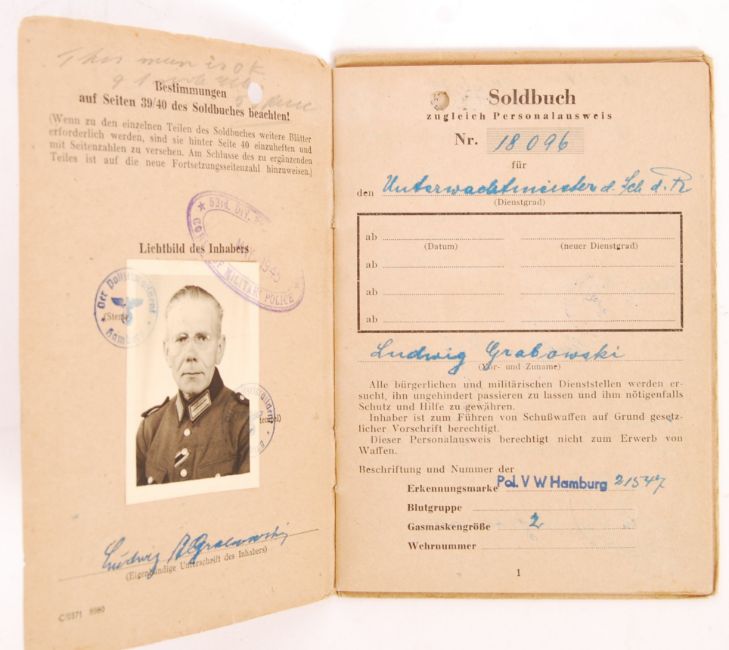 This man is OK
Bestimmungen
auf Seiten 39/40 des Soldbuches beachten!
(Wenn zu den einzelnen Teilen des Soldbuches weitere Blätter
erforderlich werden, sind sie hinter Seite 40 einzuheften und
mit Seitenzahlen zu versehen. Am Schlusse des zu ergänzenden
Teiles ist auf die neue Fortsetzungsseitenzahl hinzuweisen.)
Lichtbild des Inhabers
53rd. DIV.
1945
OF MILITARY POLICE
Der Polizeipräsident
Hamburg
Ludwig Grabowski
(Eigenhändige Unterschrift des Inhabers)
Soldbuch
zugleich Personalausweis
Nr. 18096
für
den Unterwachtmeister d. Sch. d. R
(Dienstgrad)
ab
(Datum) (neuer Dienstgrad)
ab
ab
ab
Ludwig Grabowski
(Vor- und Zuname)
Alle bürgerlichen und militärischen Dienststellen werden er-
sucht, ihn ungehindert passieren zu lassen und ihm nötigenfalls
Schutz und Hilfe zu gewähren.
Inhaber ist zum Führen von Schußwaffen auf Grund gesetz-
licher Vorschrift berechtigt.
Dieser Personalausweis berechtigt nicht zum Erwerb von
Waffen.
Beschriftung und Nummer der
Erkennungsmarke Pol. V W Hamburg 21547
Blutgruppe
Gasmaskengröße 2
Wehrnummer
1